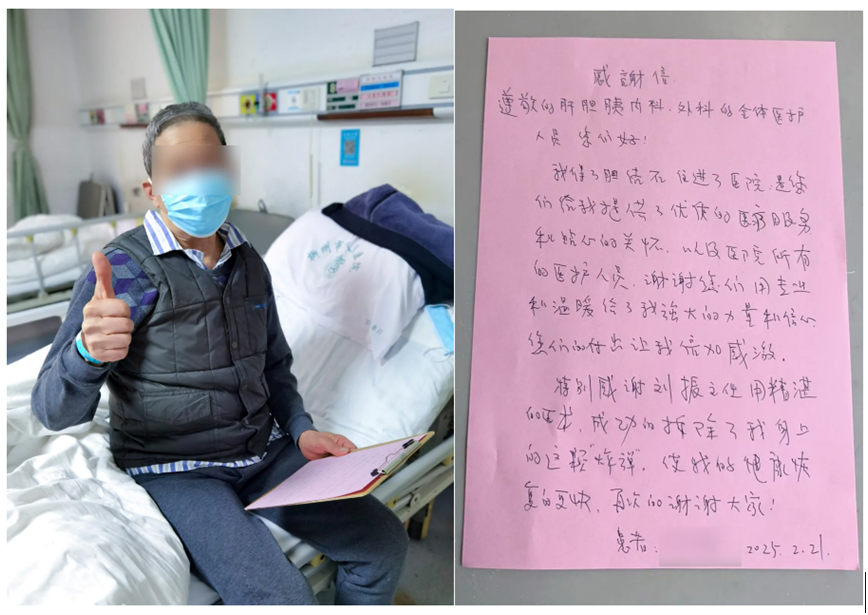 感謝信
尊敬的肝胆胰内科、外科的全体医护
人员 您们好!
我得了胆结石住进了医院,是您
们给我提供了优质的医疗服务
和贴心的关怀,以及医院所有
的医护人员,谢谢您们用专业
和温暖给了我强大的力量和信心
您们的付出让我倍加感激。
特别感谢刘振主任用精湛
的医术,成功的拆除了我身上
的这颗"炸弹",使我的健康恢
复的更快,再次的谢谢大家!
患者: 2025.2.21.